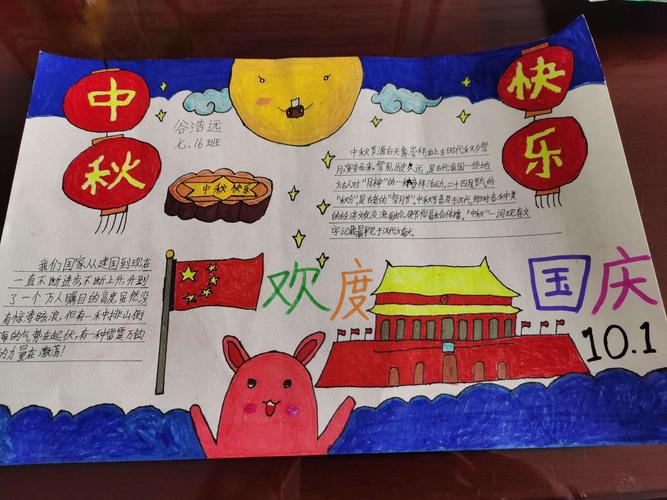 中秋
快乐
谷浩远
七.16班
中秋快乐
中秋节源自天象崇拜,由上古时代秋夕祭
月演变而来。祭月,历史久远,是古代我国一些地
方古人对"月神"的一种崇拜活动,二十四节气的
"秋分",是古老的"祭月节"。中秋节普及于汉代,
的经济文化交流融合,使节俗融合传播。"中秋"一词现存文
字记载最早见于汉代文献。
我们国家从建国到现在
一直不断进步不断上升,升到
了一个万人瞩目的高度虽然没
有惊涛骇浪,但有一种排山倒
海的气势在起伏,有一种雷霆万钧
的力量在激荡!
欢度
国庆
10.1